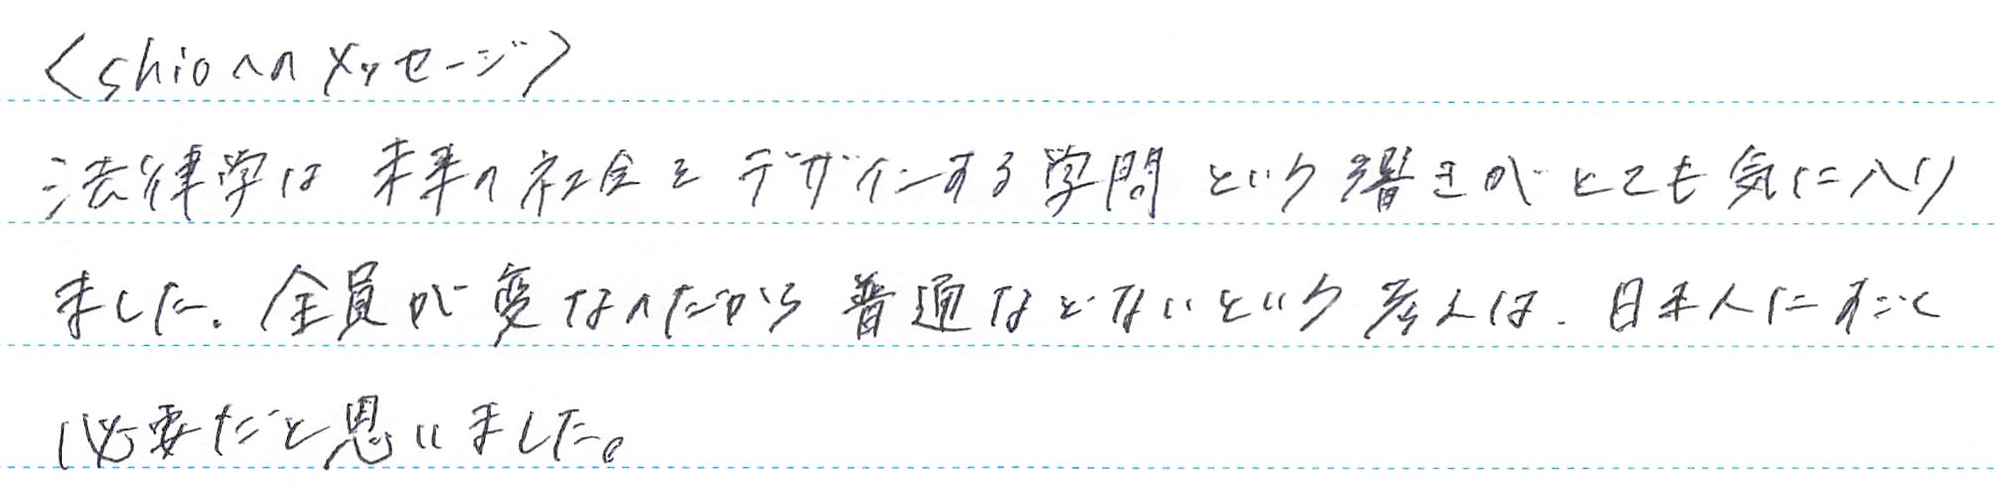 <shioへのメッセージ>
法律学は未来の社会をデザインする学問という響きがとても気に入り
ました。全員が変なのだから普通などないという考えは、日本人にすごく
必要だと思いました。